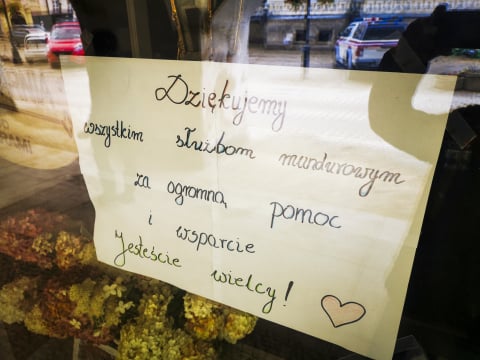 Dziękujemy
wszystkim służbom mundurowym
za ogromną pomoc
i wsparcie
Jesteście wielcy!